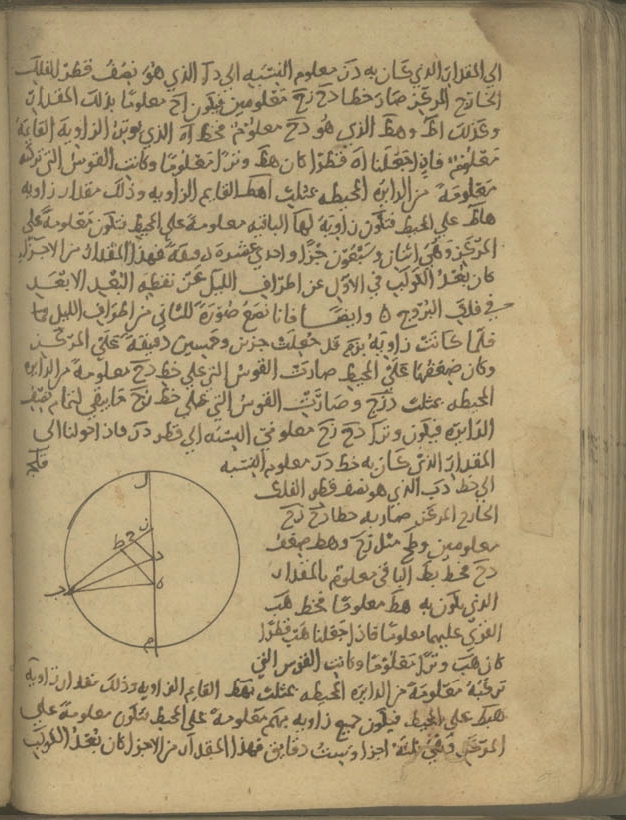 الى المقدار الذي كان به دز معلوم النسبه الى دا الذي هو نصف قطر الفلك
الخارج المركز صار خطا دح زح معلومين فيكون اح معلوما بذلك المقدار
وكذلك اط وهط الذي هو دح معلوم فخط اه الذي يوتر الزاوية القايمة
معلوم فاذا جعلنا اه قطرا كان هط وترا معلوما وكانت القوس التي تركبه
معلومة من الدايره المحيطه بمثلث اهط القايم الزاويه وذلك مقدار زاويه
هاط على المحيط فتكون زاوية لها الباقيه معلومة على المحيط فتكون معلومة على
المركز وهي اثنان وسبعون جزا واحدي عشرة دقيقة فهذا المقدار من الاجزا
كان بعد الكوكب في الاول عن اطراف الليل عن نقطه البعد الابعد
في فلك البروج ه وايضا فانا نضع صورة للثاني من اطراف الليل
فلما كانت زاويه قد جعلت جزين وخمسين دقيقة على المركز
وكان ضعفها على المحيط صارت القوس التي على خط دح معلومة من الدايره
المحيطه بمثلث دزح وصارت القوس التي على خط زح ما يبقى لتمام نصف
الدايره فيكون وترا دح زح معلومي النسبه الى قطر دز فاذا حولنا الى
المقدار الذي كان به خط دز معلوم النسبه
الى خط دب الذي هو نصف قطر الفلك
الخارج المركز صار به خطا دح زح
معلومين وطح مثل زح وهط ضعف
دح فخط بط الباقي معلوم بالمقدار
الذي يكون به هط معلوما فخط هب
القوي عليهما معلوما فاذا جعلنا هب قطرا
كان هب وترا معلوما وكانت القوس التي
تركبه معلومة من الدايره المحيطه بمثلث بهط القايم الزاويه وذلك مقدار زاويه
هبط على المحيط فيكون جميع زاويه معلومة على المحيط فتكون معلومة على
المركز وهي ثلثة اجزا وست دقايق فهذا المقدار من الاجزا كان بعد الكوكب
ل
ز
ح
ط
د
ه
ب
م